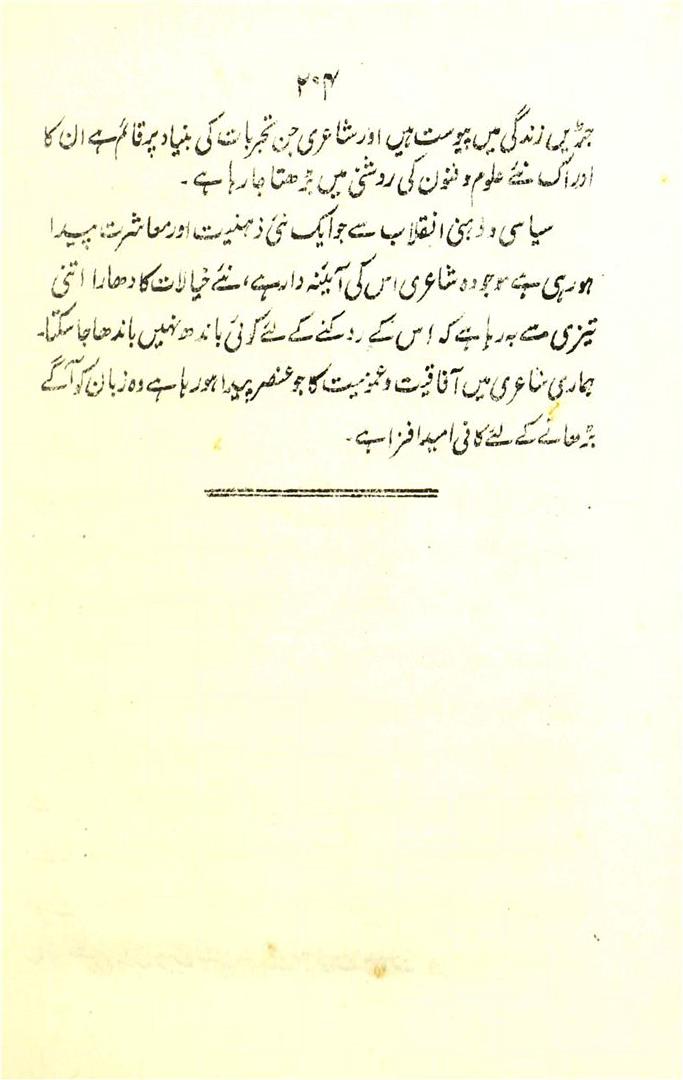 ۲۰۴
جڑیں زندگی میں پیوست ہیں اور شاعری جن تجربات کی بنیاد پر قائم ہے ان کا
ادراک نئے علوم و فنون کی روشنی میں بڑھتا جا رہا ہے۔
سیاسی و ذہنی انقلاب سے جو ایک نئی ذہنیت اور معاشرت پیدا
ہو رہی ہے موجودہ شاعری اس کی آئینہ دار ہے، نئے خیالات کا دھارا اتنی
تیزی سے بہ رہا ہے کہ اس کے روکنے کے لئے کوئی باندھ نہیں باندھا جا سکتا۔
ہماری شاعری میں آفاقیت و عمومیت کا جو عنصر پیدا ہو رہا ہے وہ زبان کو آگے
بڑھانے کے لئے کافی امید افزا ہے۔